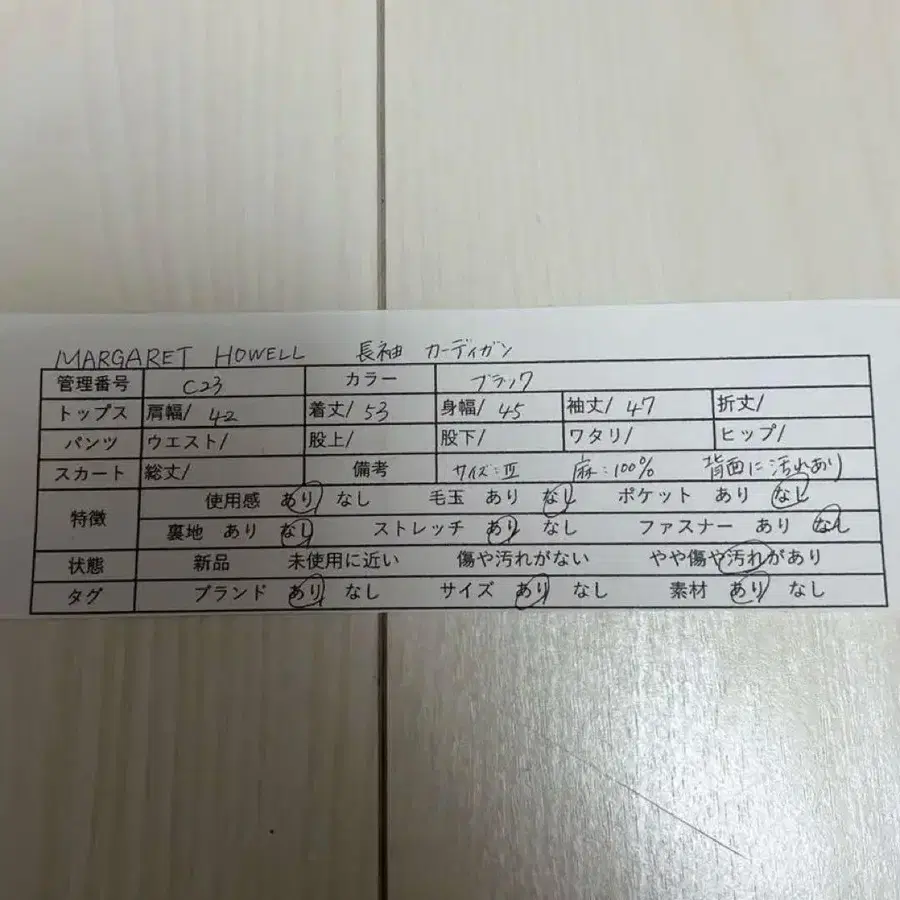 MARGARET HOWELL 長袖 カーディガン
管理番号 C23 カラー ブラック
トップス 肩幅/ 42 着丈/ 53 身幅/ 45 袖丈/ 47 折丈/
パンツ ウエスト/ 股上/ 股下/ ワタリ/ ヒップ/
スカート 総丈/ 備考 サイズ:Ⅱ 麻:100% 背面に汚れあり
特徴 使用感 あり なし 毛玉 あり なし ポケット あり なし
裏地 あり なし ストレッチ あり なし ファスナー あり なし
状態 新品 未使用に近い 傷や汚れがない やや傷や汚れがあり
タグ ブランド あり なし サイズ あり なし 素材 あり なし